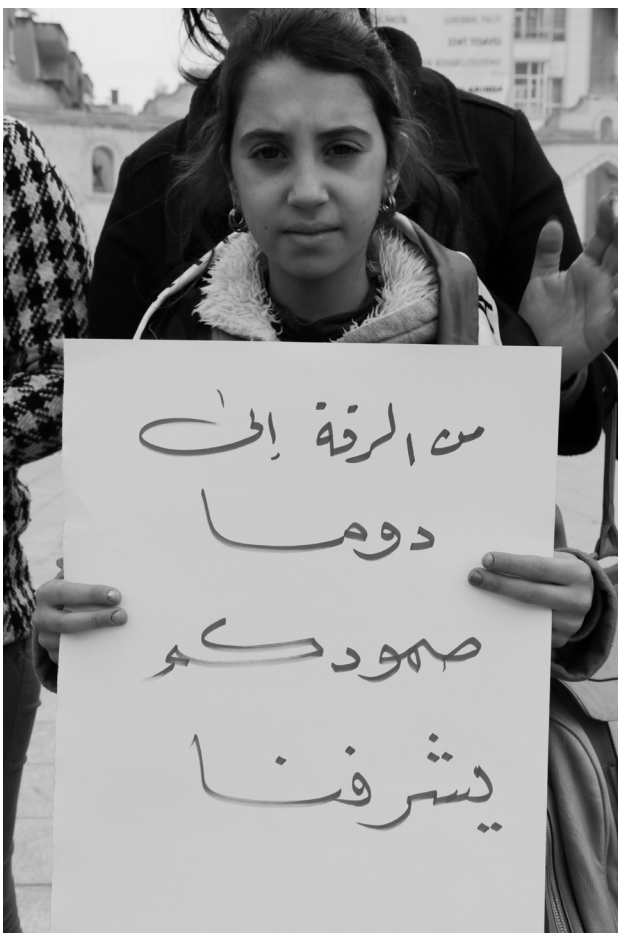 من الرقة إلى
دوما
صمودكم
يشرفنا